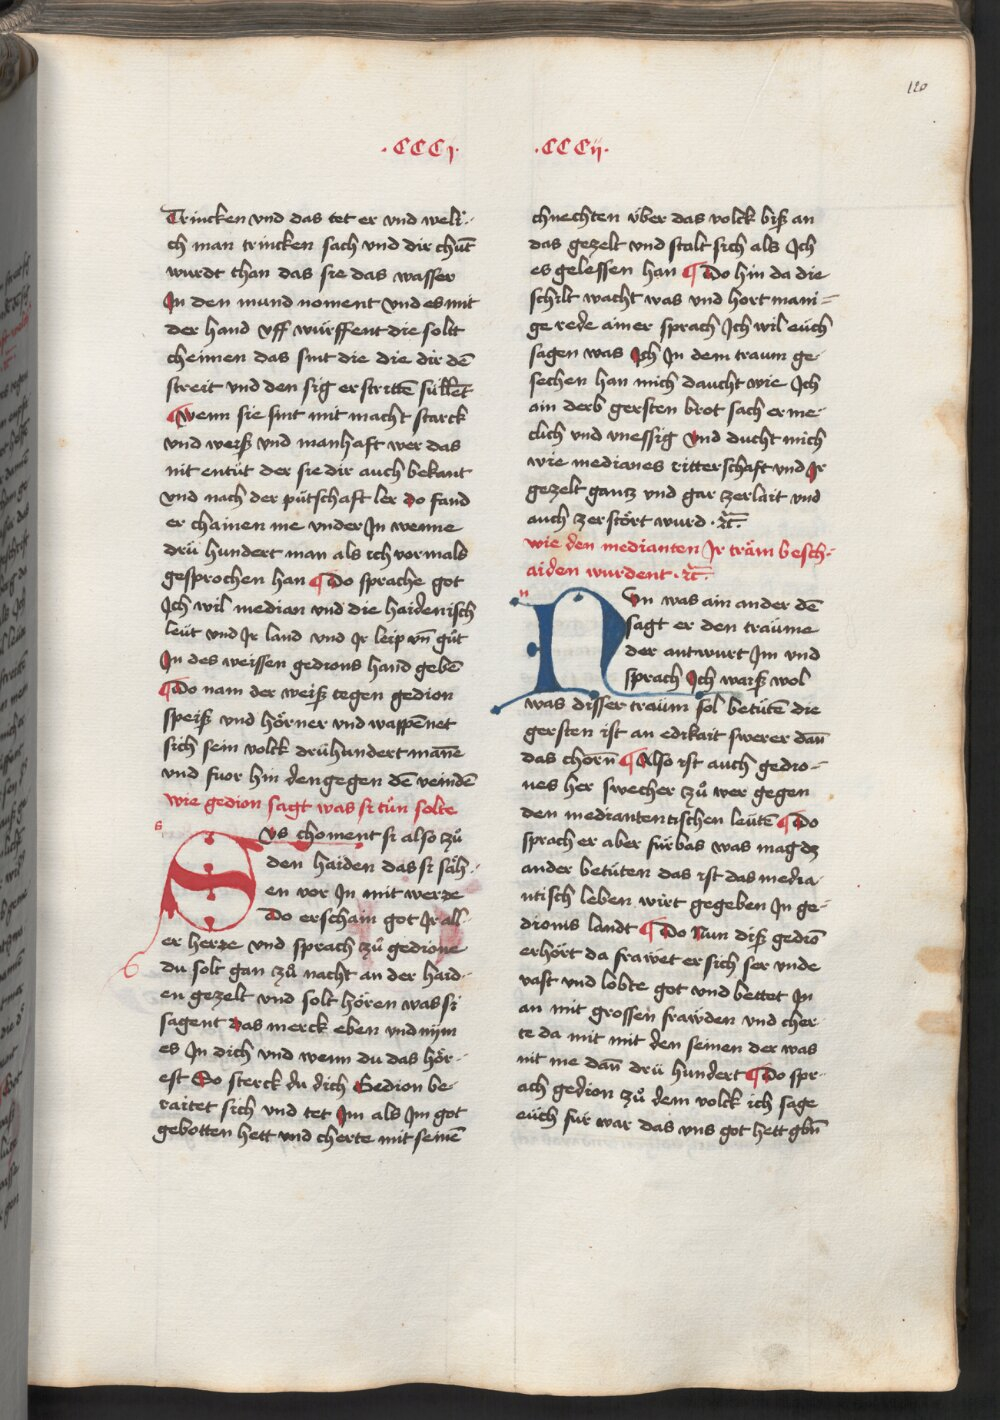 120
·CCCj·
Trincken vnd das tet er vnd weli-
ch man trincken sach vnd dir chūt
wurdt than das sie das wasser
In den mund noment vnd es mit
der hand vff würffent die solt
cheinen das sint die die dir dē
streit vnd den sig erstrittē süllēt
¶Wenn sie sint mit macht starck
vnd weiß vnd manhaft wer das
nit entüt der sie dir auch bekant
vnd nach der pütschaft ler do fand
er chainen me vnder In wenne
drü hundert man als ich vormals
gesprochen han ¶Do sprache got
Ich wil median vnd die haidenisch
leüt vnd Ir land vnd Ir leip vn̄ gůt
In des weissen gedions hand gebē
¶Do nam der weiß tegen gedion
speiß vnd hörner vnd wappēnet
sich sein volck drühundert manē
vnd fuor hin dengegen dē veindē
wie gedion sagt was si tůn solte
s
Svs choment si also zů
den haiden das si säh-
en vor In mit werde
Do erschain got Ir all-
er herze vnd sprach zů gedione
du solt gan zů nacht an der haid-
en gezelt vnd solt hören was si
sagent das merck eben vnd nym
es In dich vnd wenn du das hör-
est So sterck du dich Gedion be-
raitet sich vnd tet Im als Im got
gebotten hett vnd cherte mit seinē
·CCCij·
chnechten über das volck biß an
das gezelt vnd stalt sich als Ich
es gelessen han ¶Do hin da die
schilt wacht was vnd hort mani-
ge rede ainer sprach Ich wil eüch
sagen was Ich In dem traum ge-
sechen han mich daucht wie Ich
ain derb gersten brot sach er me-
clich vnd vnessig Vnd ducht mich
wie medianes ritterschaft vnd Ir
gezelt gantz vnd gar zerlait vnd
auch zerstört wurd · ꝛc̄·
wie den medianten Ir träm besch-
aiden wurdent · ꝛc̄·
n
Nvn was ain ander dē
sagt er den traüme
der antwurt Im vnd
sprach Ich waiß wol
was disser traüm sol betütē die
gersten ist an edikait swerer dan̄
das chorn̄ ¶Also ist auch gedio-
nes her swecher zů wer gegen
den mediantentischen leütē ¶Do
sprach er aber fürbas was mag dz
ander betüten das ist das media-
ntisch leben wirt gegeben In ge-
dionis landt ¶Do Nun diß gediō
erhört da frawet er sich ser vnde
vast vnd lobte got vnd bettet In
an mit grossen frawden vnd cher-
te da mit mit den seinen der was
nit me dan̄ drü hundert ¶Do spr-
ach gedion zů dem volck ich sage
eüch für war das vns got hett gbn̄